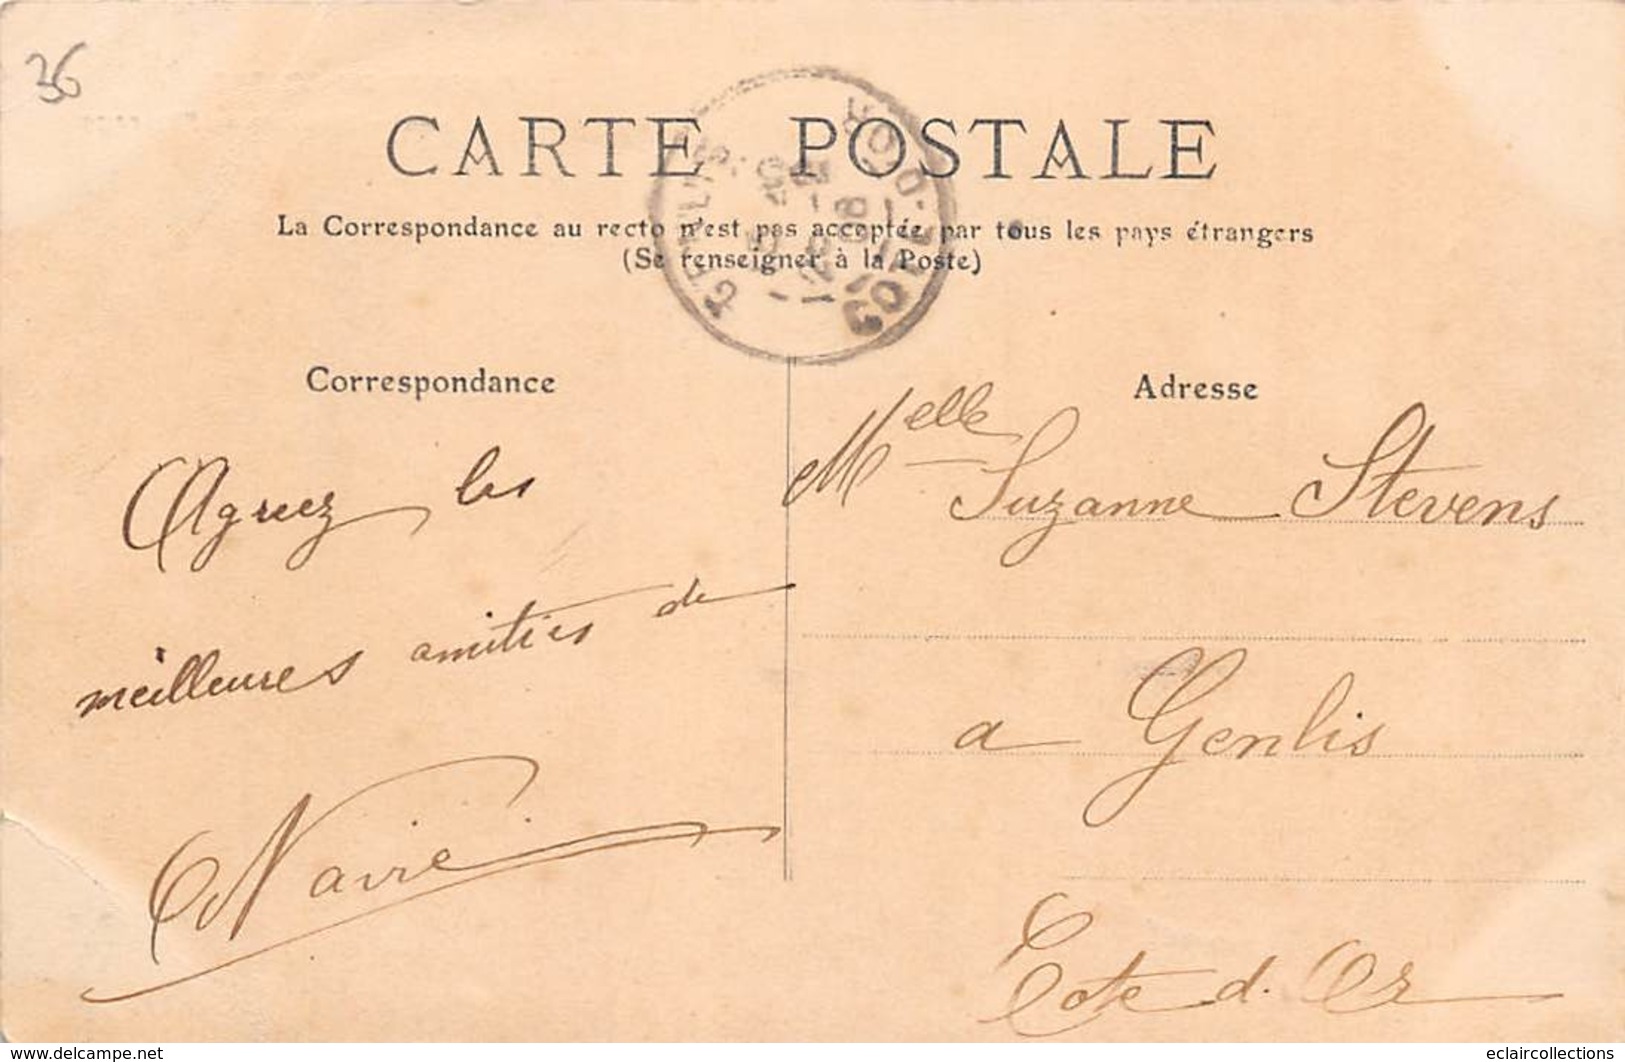 36
CARTE POSTALE
La Correspondance au recto n'est pas acceptée par tous les pays étrangers
(Se renseigner à la Poste)
Correspondance
Adresse
Agreez les
meilleures amitiés de
Melle Suzanne Stevens
a Genlis
Cote d'Or
COTE-D'OR
www.delcampe.net
eclaircollections